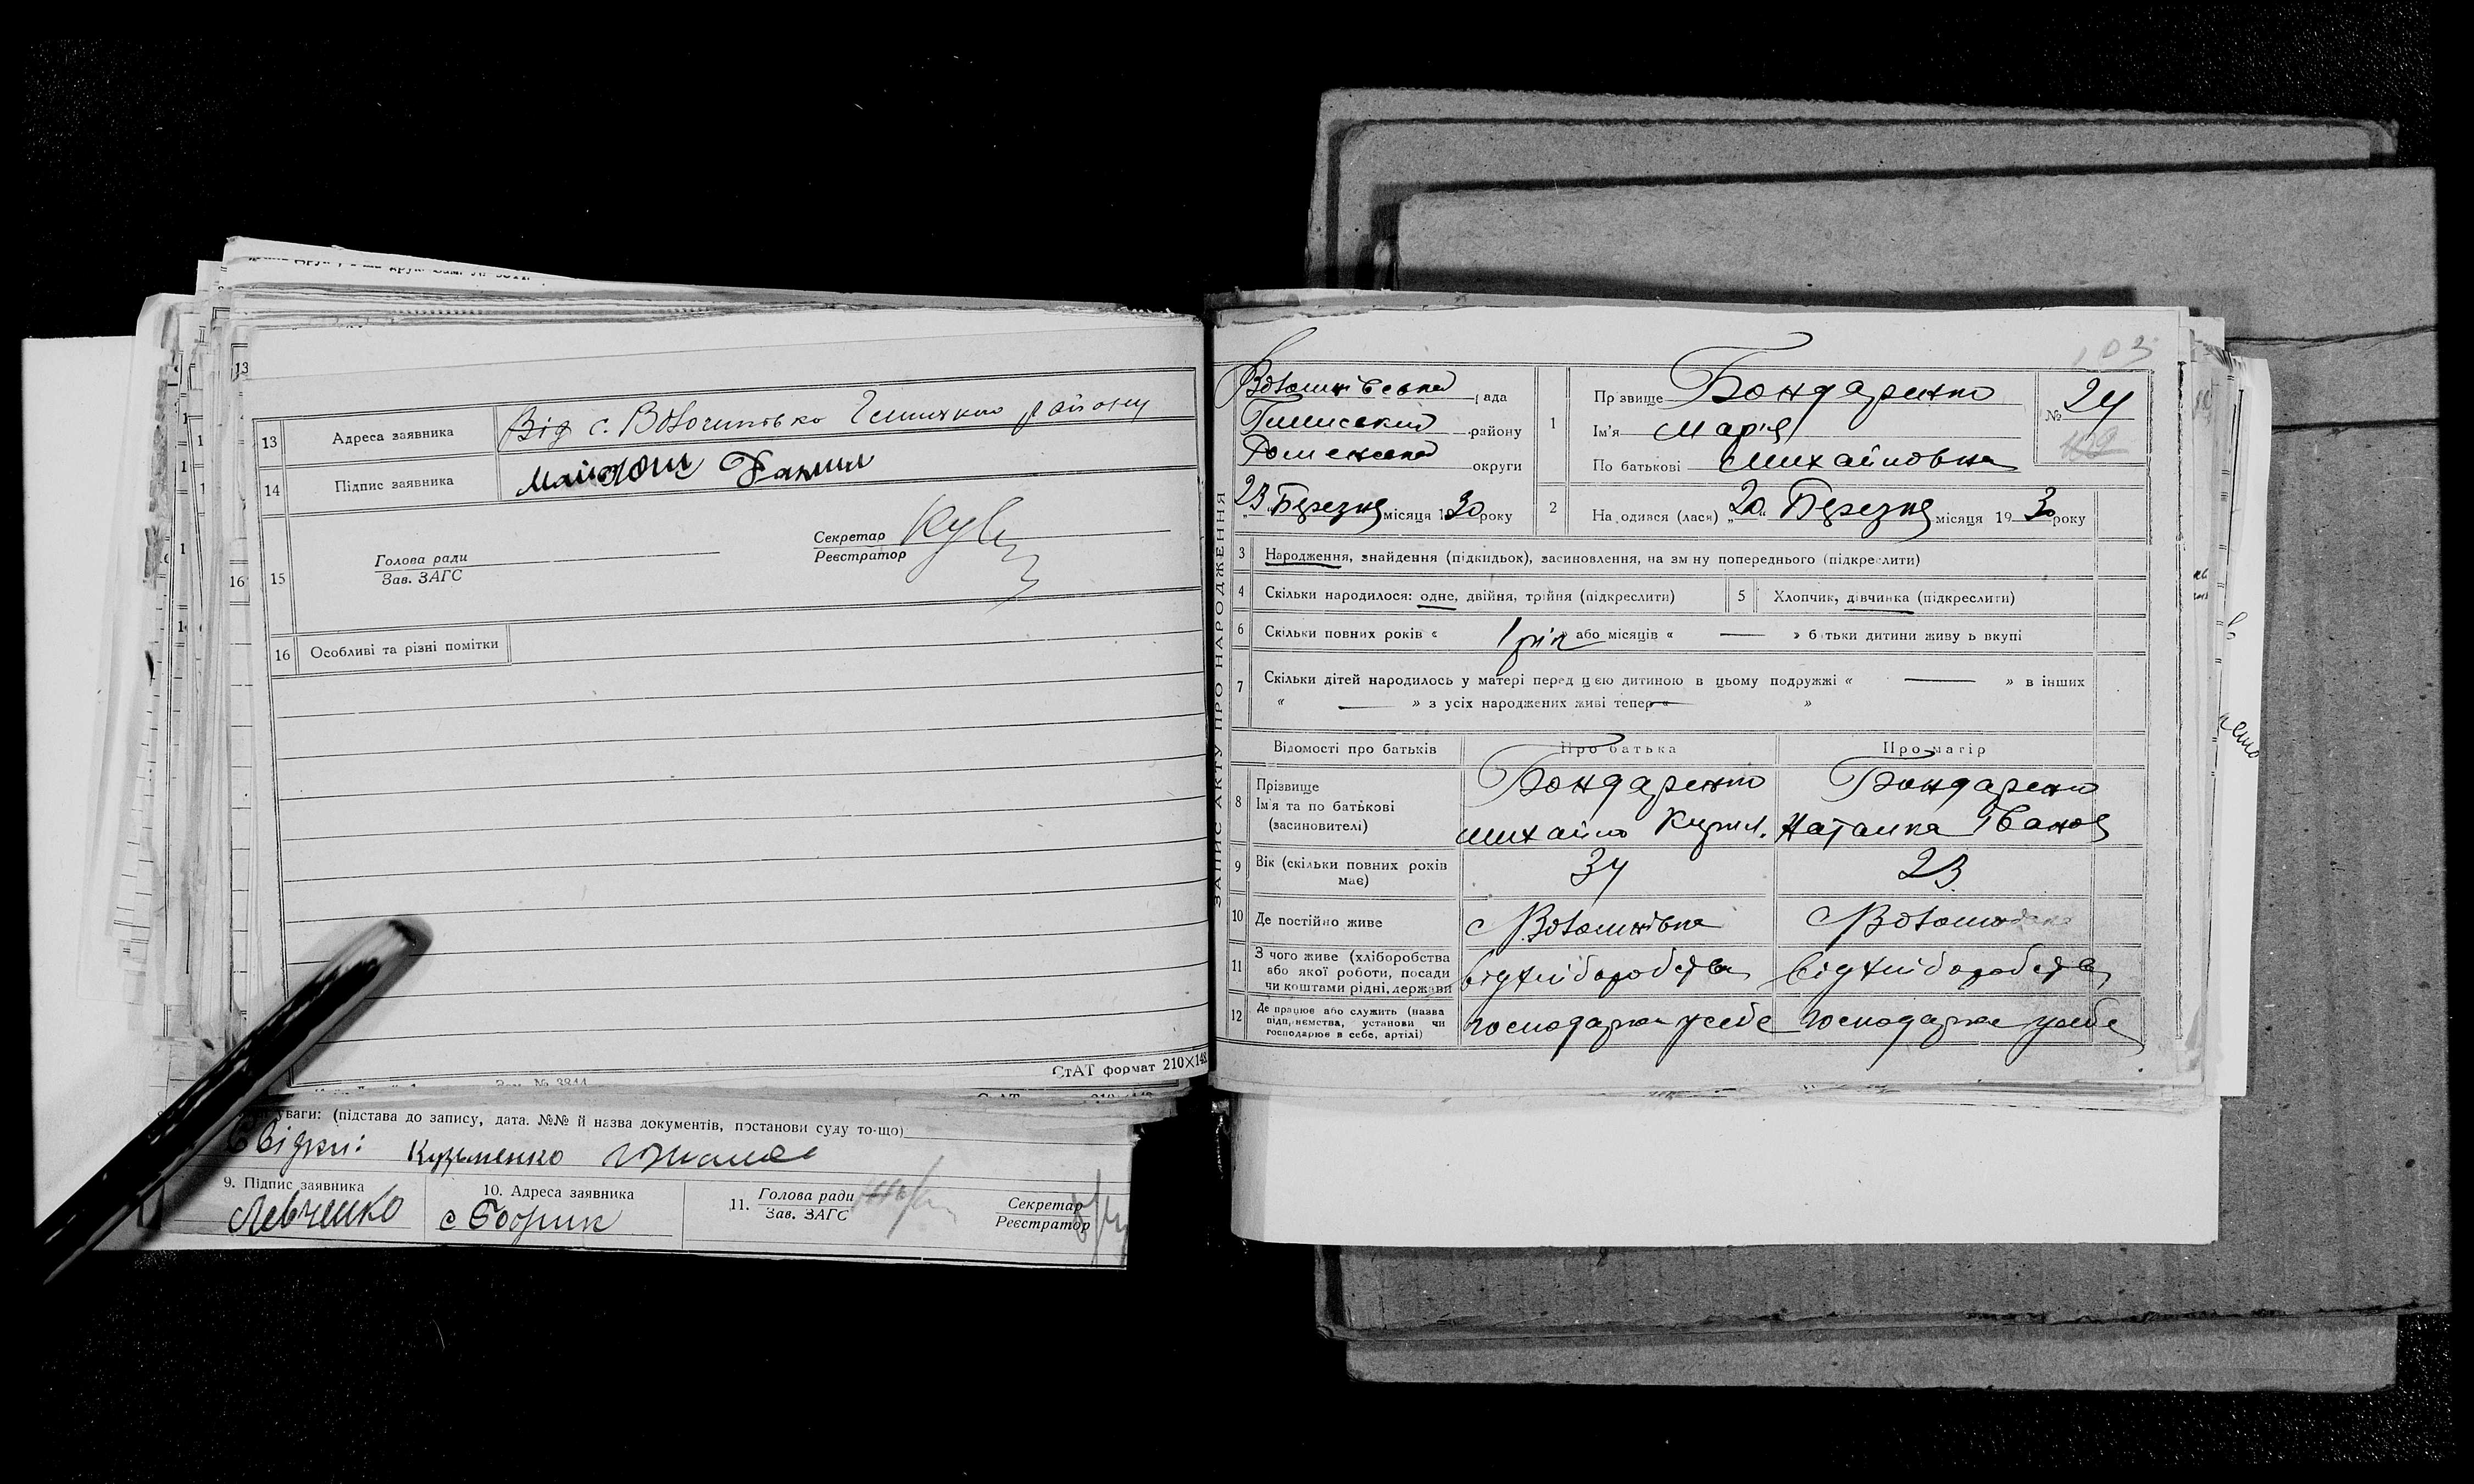 13 Адреса заявника
Від с. району
14 Підпис заявника
Данил
15 Голова ради
Зав. ЗАГС
Секретар
Реєстратор
16 Особливі та різні помітки
СтАТ формат 210×148
уваги: (підстава до запису, дата. №№ й назва документів, постанови суду то-що)
Свідки: Кузьменко
9. Підпис заявника
Левченко
10. Адреса заявника
11. Голова ради
Зав. ЗАГС
Секретар
Реєстратор
ЗАПИС АКТУ ПРО НАРОДЖЕННЯ
103
рада
району
округи
23 Березня місяця 1930 року
1 Прізвище Бондаренко
Ім'я Марія
По батькові Михайловна
№ 24
2 Народився (лася) „20“ Березня місяця 1930 року
3 Народження, знайдення (підкидьок), засиновлення, на зміну попереднього (підкреслити)
4 Скільки народилося: одне, двійня, трійня (підкреслити)
5 Хлопчик, дівчинка (підкреслити)
6 Скільки повних років « 1 рік » або місяців « — » батьки дитини живуть вкупі
7 Скільки дітей народилось у матері перед цією дитиною в цьому подружжі « — » в інших
« — » з усіх народжених живі тепер « — »
Відомості про батьків Про батька Про матір
8 Прізвище
Ім'я та по батькові
(засновителі)
Бондаренко
Михайло
Бондаренко
Наталка Іванов
9 Вік (скільки повних років має)
34
23
10 Де постійно живе
11 З чого живе (хліборобства
або якої роботи, посади
чи коштами рідні, держави
від хліборобства
від хліборобства
12 Де працює або служить (назва
підприємства, установи чи
господарює в себе, артілі)
господарює у себе
господарює у себе